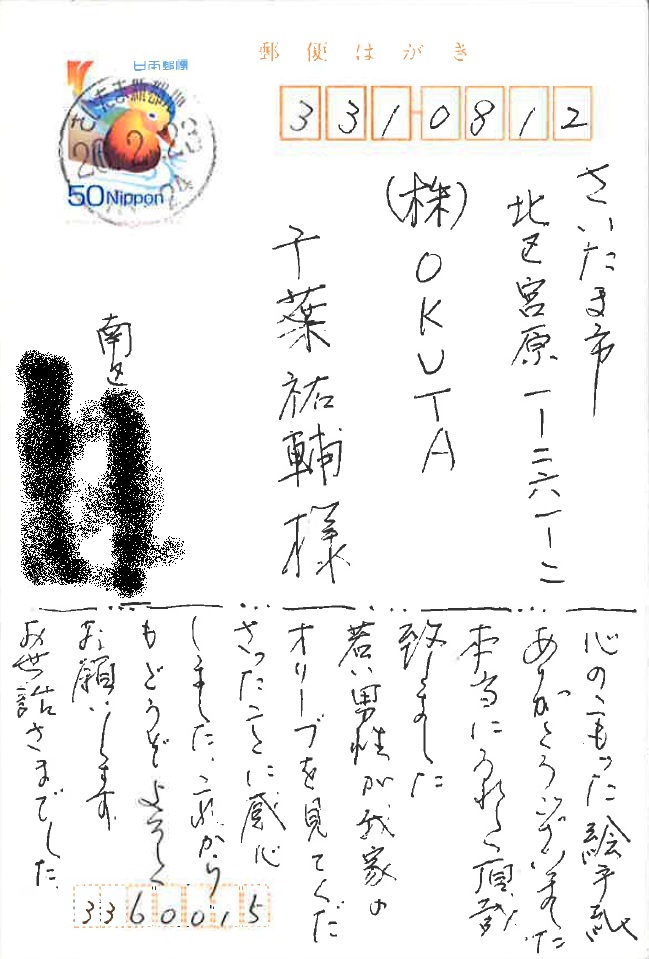 郵便はがき
日本郵便
さいたま新都心
50 Nippon
3310812
さいたま市
北区宮原一ー二六一ー二
(株)OKUTA
千葉祐輔様
南区
心のこもった絵手紙
ありがとうございました
本当にうれしく頂戴
致しました
若い男性が我家の
オリーブを見てくだ
さったことに感心
しました、これから
もどうぞよろしく
お願いします
お世話さまでした
3360015